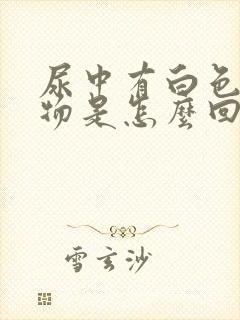 尿中有白色
物是怎麼回
雪玄沙